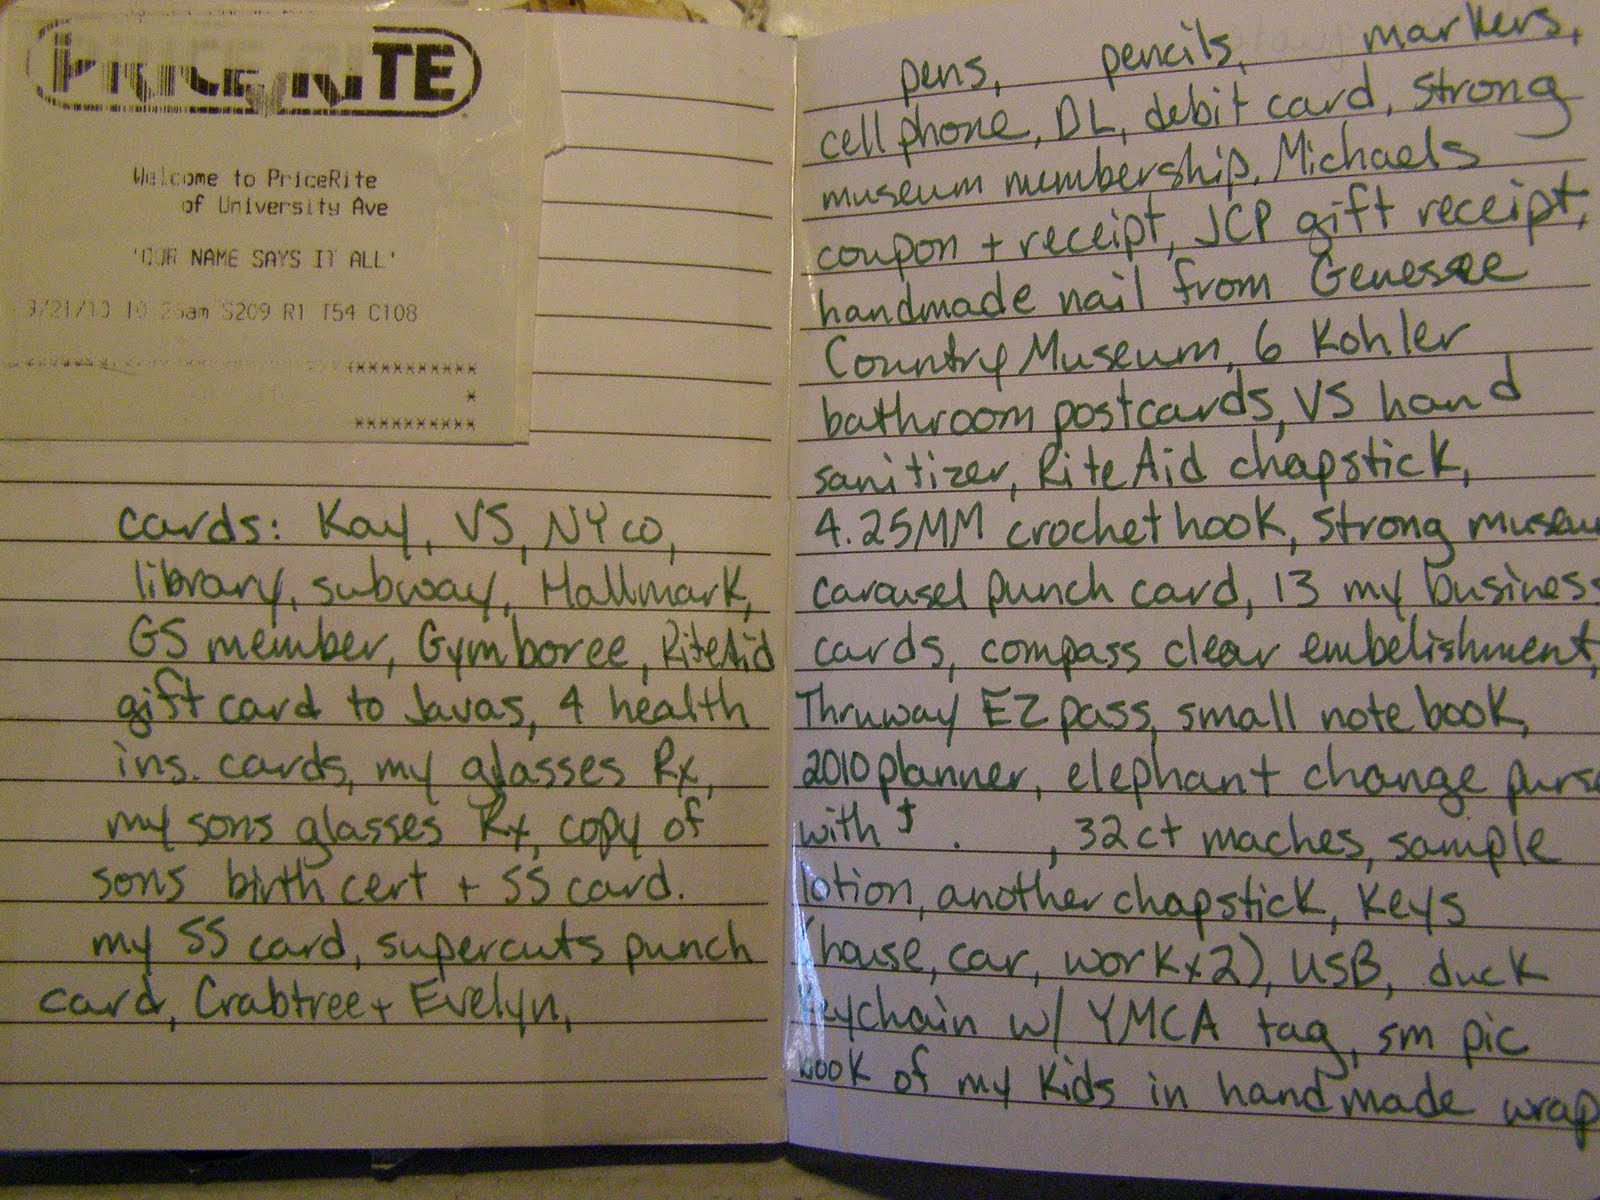 PRICE RITE
Welcome to PriceRite
of University Ave
'OUR NAME SAYS IT ALL'
3/21/10 10 26am S209 R1 T54 C108
**********
*
**********
cards: Kay, VS, NYco,
library, subway, Hallmark,
GS member, Gymboree, RiteAid
gift card to Javas, 4 health
ins. cards, my glasses Rx,
my sons glasses Rx, copy of
sons birth cert + SS card.
my SS card, supercuts punch
card, Crabtree + Evelyn,
pens, pencils, markers,
cell phone, DL, debit card, strong
museum membership, Michaels
coupon + receipt, JCP gift receipt,
handmade nail from Genessee
Country Museum, 6 Kohler
bathroom postcards, VS hand
sanitizer, RiteAid chapstick,
4.25MM crochet hook, strong museum
carousel punch card, 13 my business
cards, compass clear embelishment,
Thruway EZ pass, small notebook,
2010 planner, elephant change purse
with $ . , 32 ct maches, sample
lotion, another chapstick, keys
(house, car, work x2), USB, duck
keychain w/ YMCA tag, sm pic
book of my kids in handmade wrap